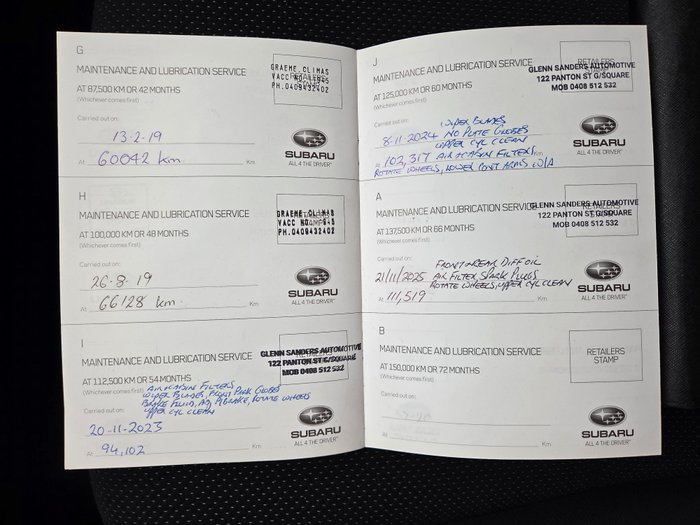 G
MAINTENANCE AND LUBRICATION SERVICE
AT 87,500 KM OR 42 MONTHS
(Whichever comes first)
GRAEME CLIMAS
VACC NO.
PH.0409432402
Carried out on:
13-2-19
At 60042 km
Km
SUBARU
ALL 4 THE DRIVER
H
MAINTENANCE AND LUBRICATION SERVICE
AT 100,000 KM OR 48 MONTHS
(Whichever comes first)
GRAEME CLIMAS
VACC NO.
PH.0409432402
Carried out on:
26-8-19
At 66128 km
Km
SUBARU
ALL 4 THE DRIVER
I
MAINTENANCE AND LUBRICATION SERVICE
AT 112,500 KM OR 54 MONTHS
(Whichever comes first)
GLENN SANDERS AUTOMOTIVE
122 PANTON ST G/SQUARE
MOB 0408 512 532
AIR + CABIN FILTERS
WIPER BLADES, FRONT PARK GLOBES
BRAKE FLUID, ADJ P/BRAKE, ROTATE WHEELS
UPPER CYL CLEAN
Carried out on:
20-11-2023
At 94,102
Km
SUBARU
ALL 4 THE DRIVER
J
MAINTENANCE AND LUBRICATION SERVICE
AT 125,000 KM OR 60 MONTHS
(Whichever comes first)
RETAILERS
GLENN SANDERS AUTOMOTIVE
122 PANTON ST G/SQUARE
MOB 0408 512 532
Carried out on:
WIPER BLADES
8-11-2024 NO PLATE GLOBES
UPPER CYL CLEAN
At 102,317 AIR + CABIN FILTERS
Km
ROTATE WHEELS, LOWER FONT ARMS W/A
SUBARU
ALL 4 THE DRIVER
A
MAINTENANCE AND LUBRICATION SERVICE
AT 137,500 KM OR 66 MONTHS
(Whichever comes first)
GLENN SANDERS AUTOMOTIVE
122 PANTON ST G/SQUARE
MOB 0408 512 532
Carried out on:
FRONT + REAR DIFF OIL
21/11/2025 AIR FILTER, SPARK PLUGS
ROTATE WHEELS, UPPER CYL CLEAN
At 111,519
Km
SUBARU
ALL 4 THE DRIVER
B
MAINTENANCE AND LUBRICATION SERVICE
AT 150,000 KM OR 72 MONTHS
(Whichever comes first)
RETAILERS
STAMP
Carried out on:
At
Km
SUBARU
ALL 4 THE DRIVER